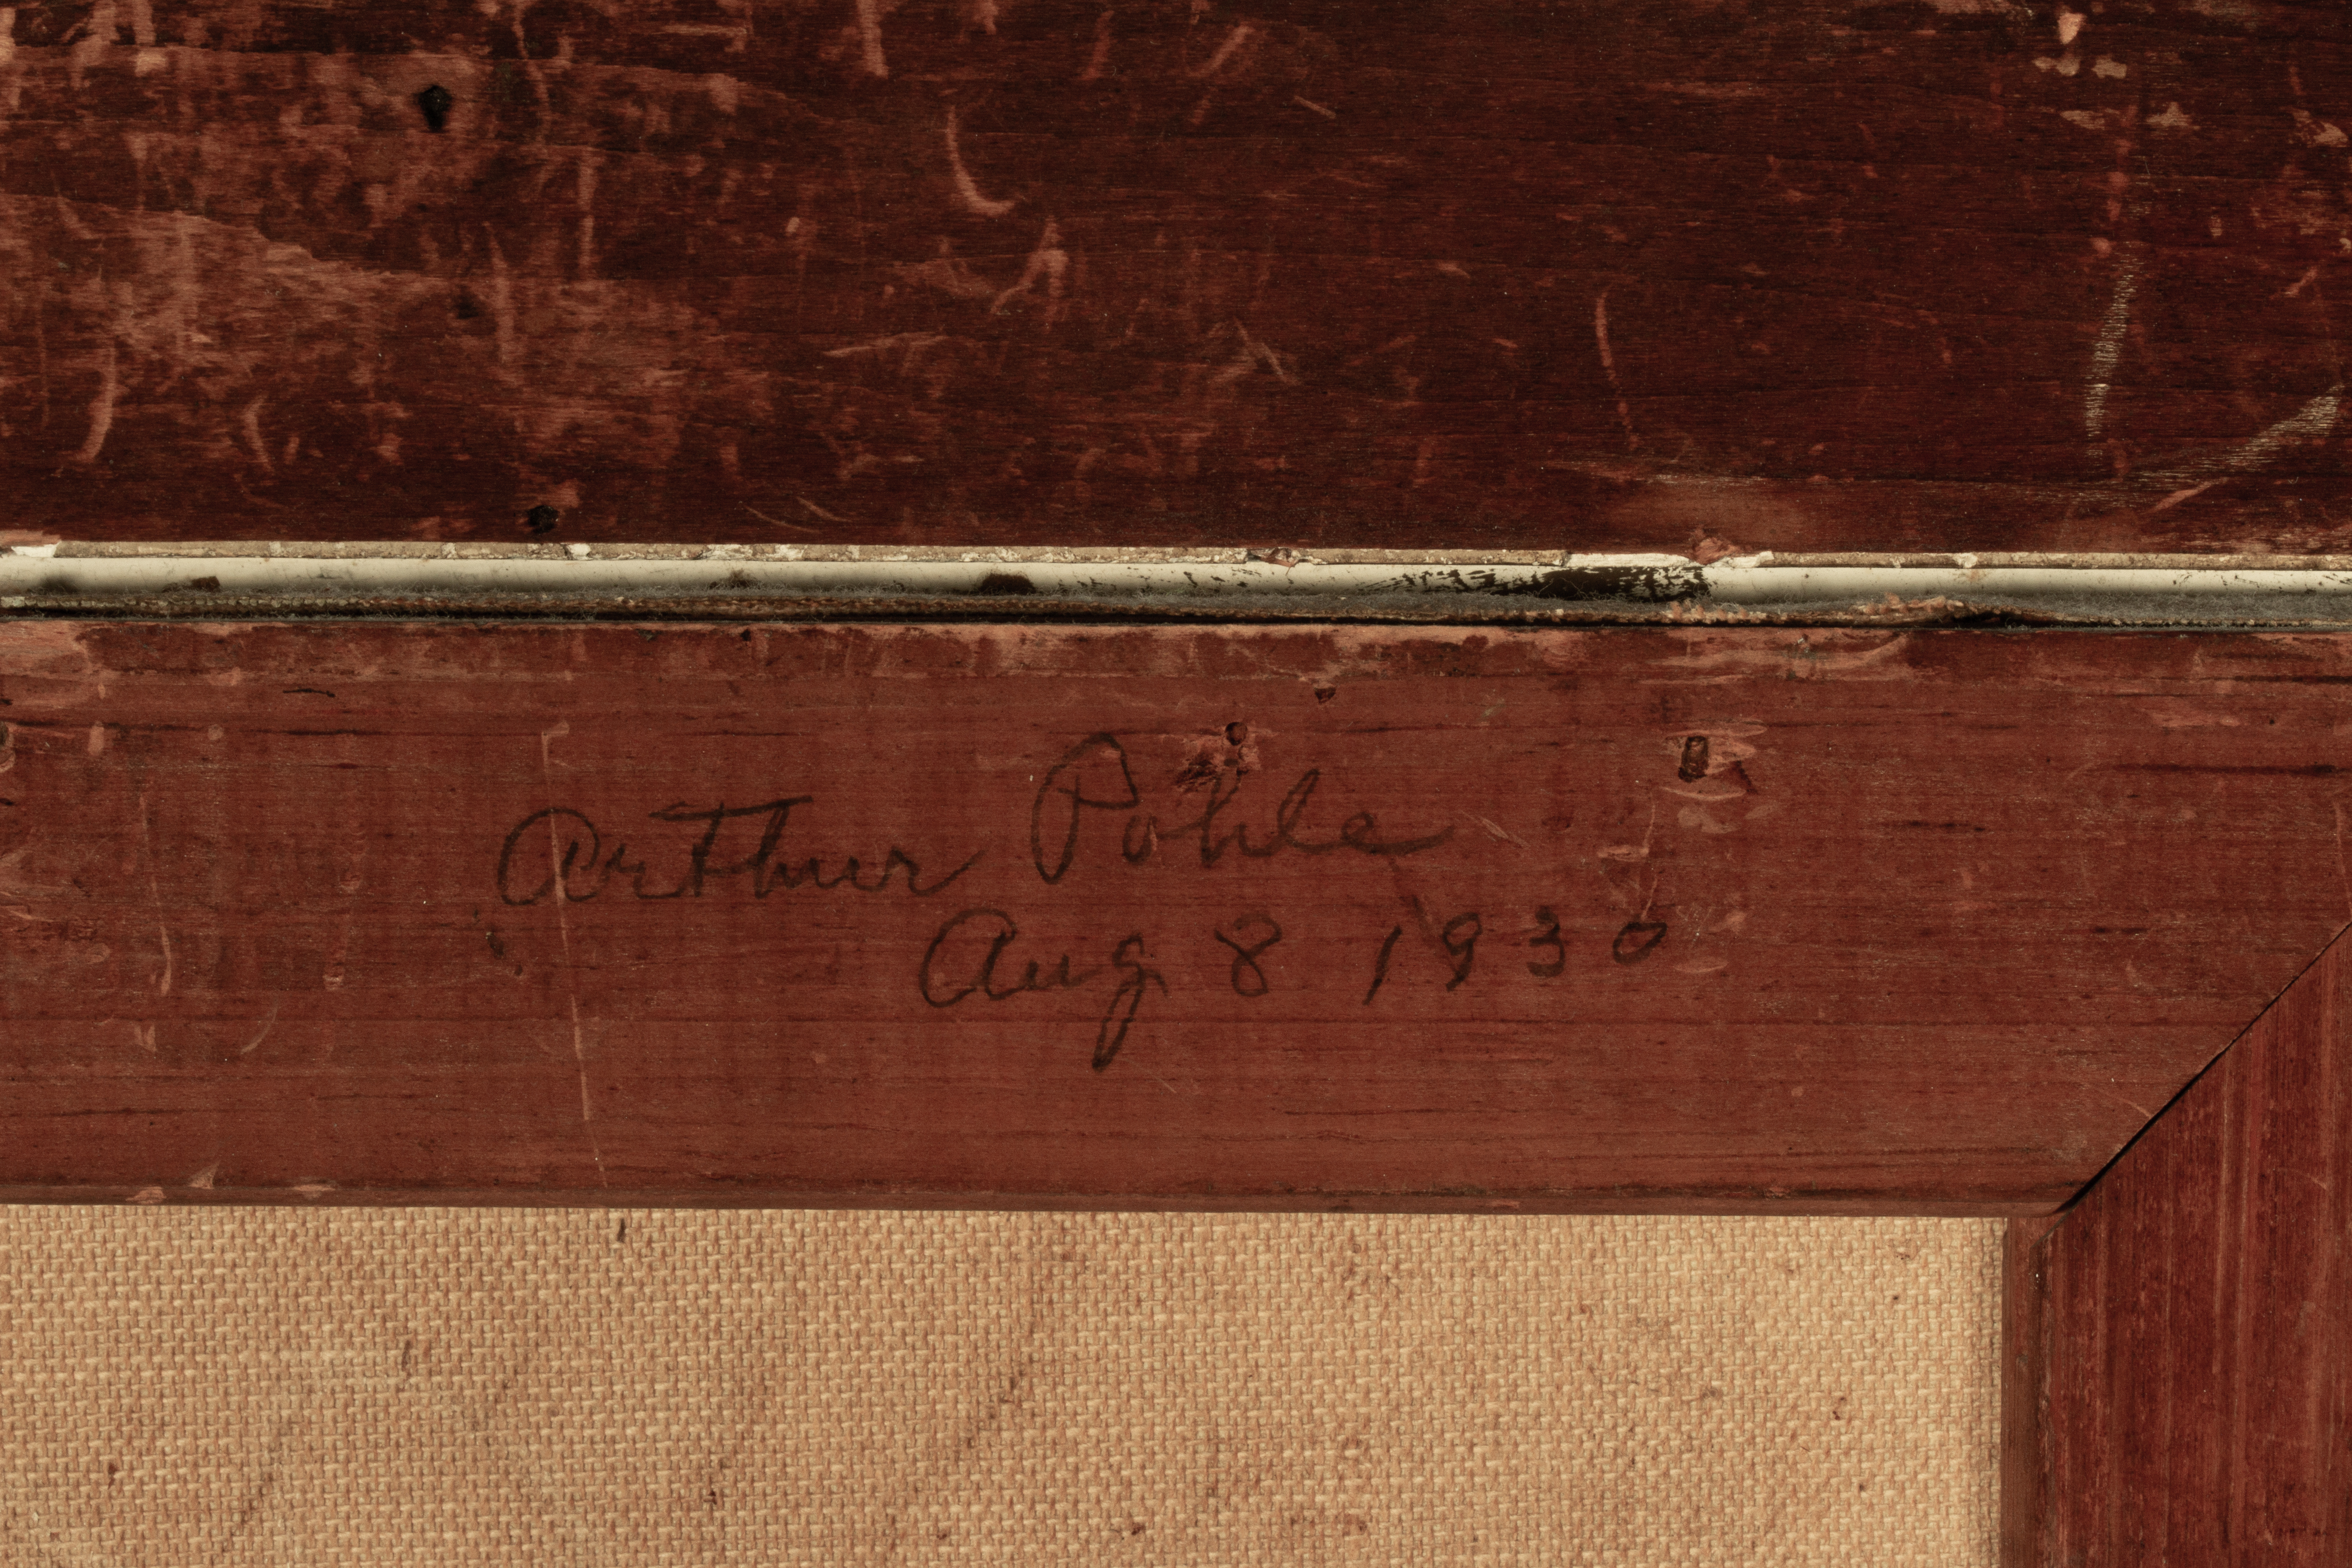 Arthur Pohle
Aug 8 1930